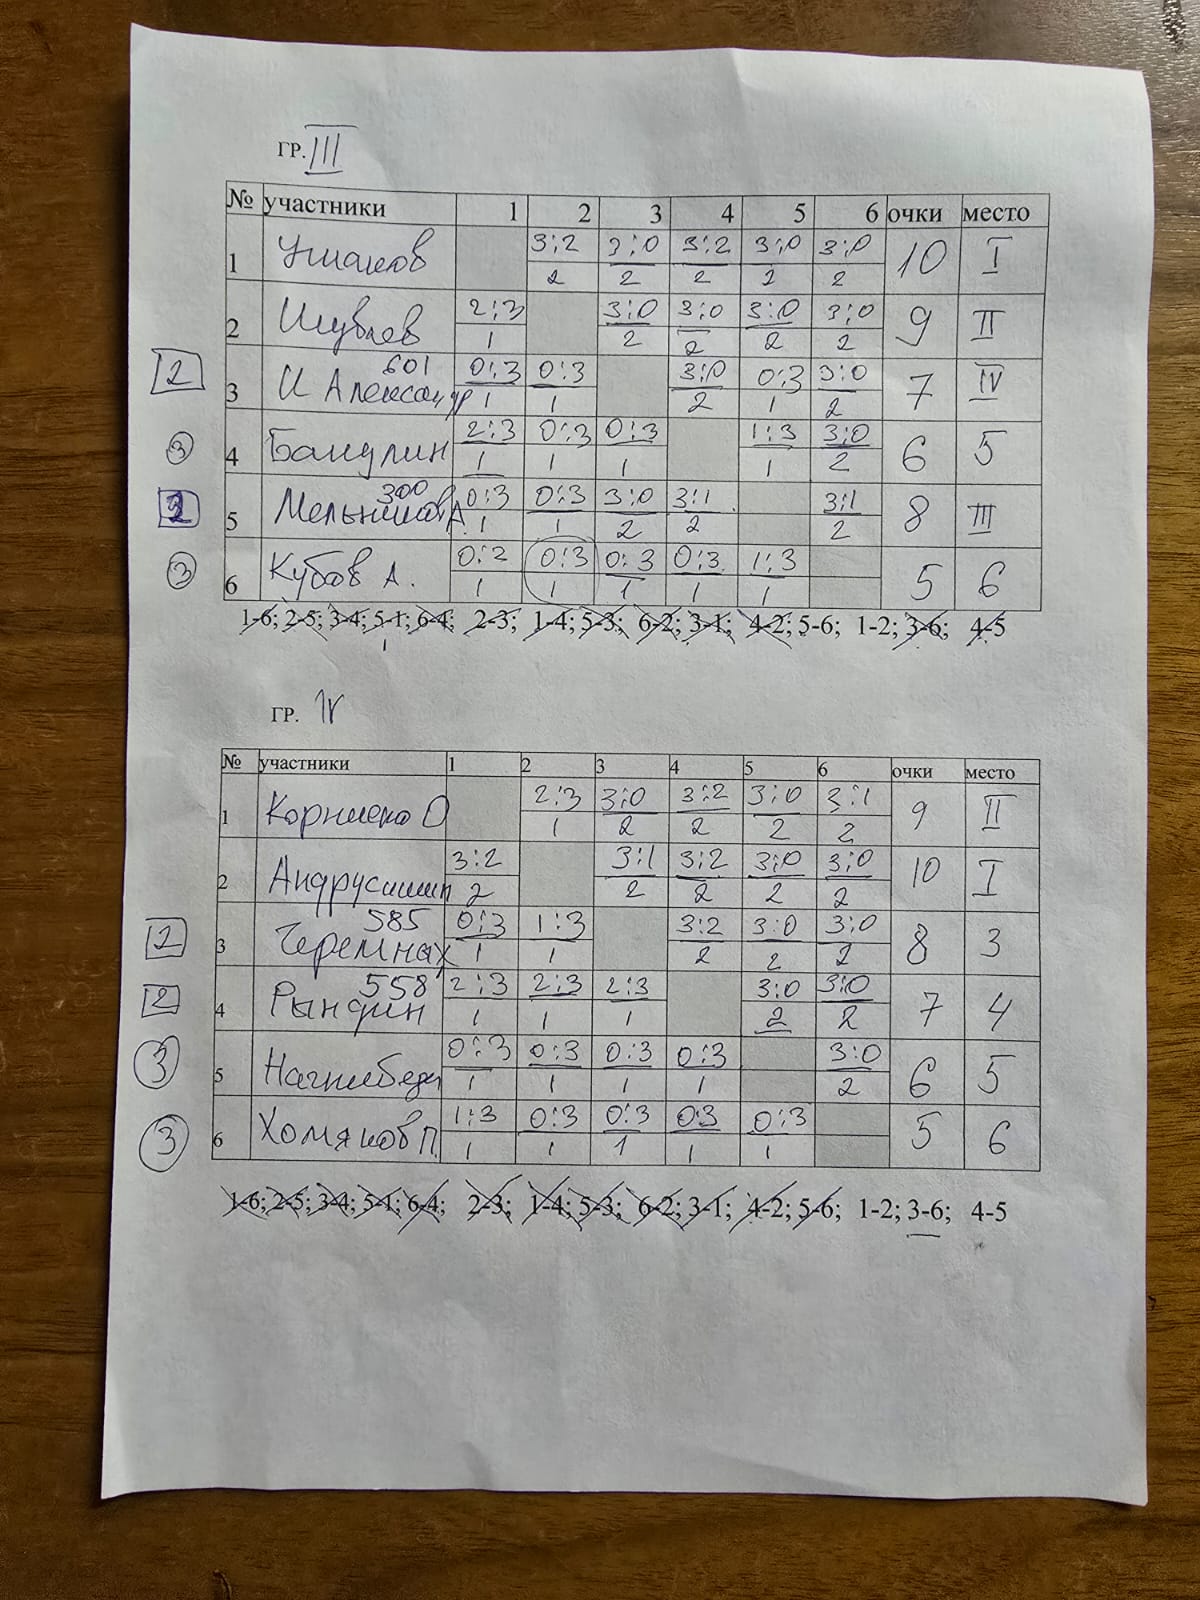 ГР. III
№ участники 1 2 3 4 5 6 очки место
1 Ушаков 3:2 3:0 3:2 3:0 3:0 10 I
2 2 2 2 2
2 Шувлев 2:3 3:0 3:0 3:0 3:0 9 II
1 2 2 2 2
2 601
3 И Александр 0:3 0:3 3:0 0:3 3:0 7 IV
1 1 2 1 2
3 4 Бакулин 2:3 0:3 0:3 1:3 3:0 6 5
1 1 1 1 2
300
5 Мельников А 0:3 0:3 3:0 3:1 3:1 8 III
1 1 2 2 2
3 6 Кубов А. 0:2 0:3 0:3 0:3 1:3 5 6
1 1 1 1 1
1-6; 2-5; 3-4; 5-1; 6-4; 2-3; 1-4; 5-3; 6-2; 3-1; 4-2; 5-6; 1-2; 3-6; 4-5
ГР. IV
№ участники 1 2 3 4 5 6 очки место
1 Корниенко О 2:3 3:0 3:2 3:0 3:1 9 II
1 2 2 2 2
2 Андрусишин 3:2 3:1 3:2 3:0 3:0 10 I
2 2 2 2 2
2 585
3 Черемных 0:3 1:3 3:2 3:0 3:0 8 3
1 1 2 2 2
2 558
4 Рындин 2:3 2:3 2:3 3:0 3:0 7 4
1 1 1 2 2
3 5 Нагнибеда 0:3 0:3 0:3 0:3 3:0 6 5
1 1 1 1 2
3 6 Хомяков П. 1:3 0:3 0:3 0:3 0:3 5 6
1 1 1 1 1
1-6; 2-5; 3-4; 5-1; 6-4; 2-3; 1-4; 5-3; 6-2; 3-1; 4-2; 5-6; 1-2; 3-6; 4-5